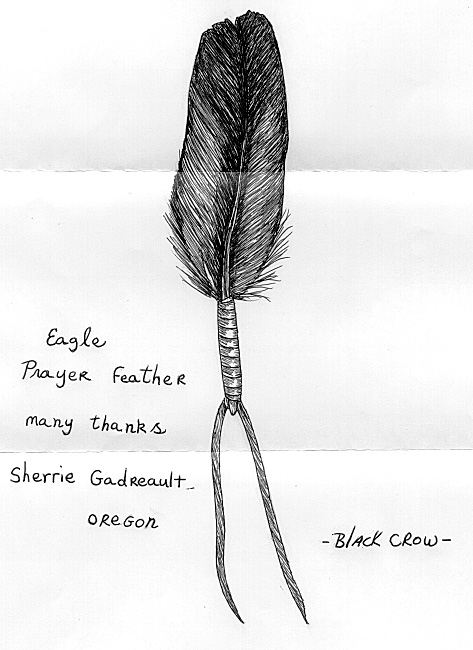 Eagle
Prayer Feather
many thanks
Sherrie Gadreault
OREGON
-Black CROW-